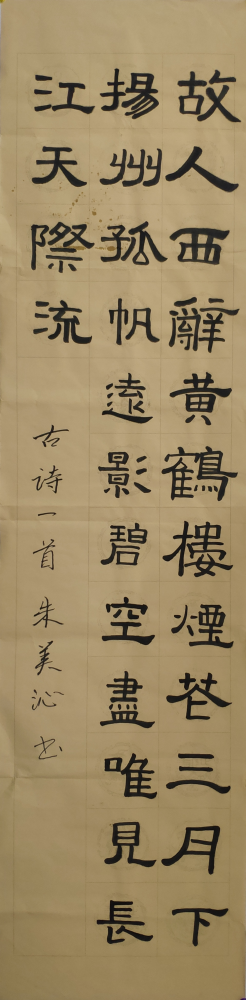 故人西辭黃鶴樓煙花三月下
揚州孤帆遠影碧空盡唯見長
江天際流
古诗一首 朱美沁书